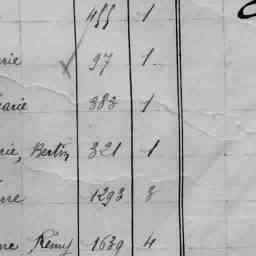 455 1
rie 97 1
arie 383 1
rie, Bertin 321 1
rre 1293 3
ne Rémy 1639 4